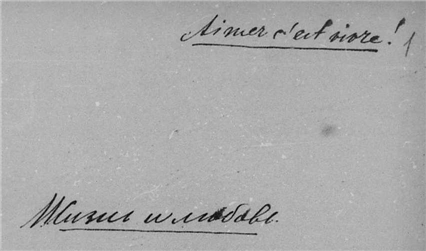 Aimer c'est vivre!
Жизнь и любовь.